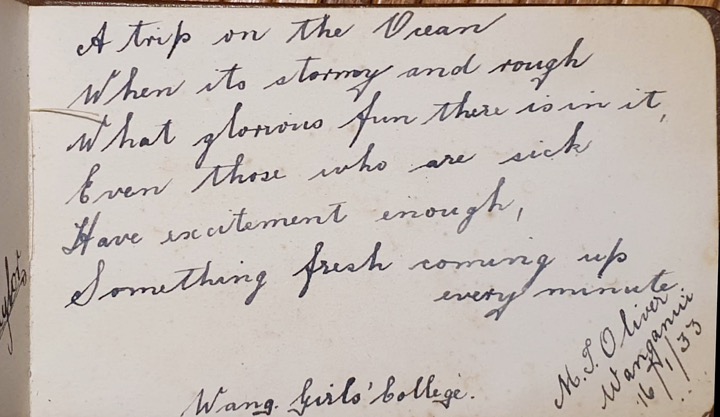 A trip on the Ocean
When its stormy and rough
What glorious fun there is in it,
Even those who are sick
Have excitement enough,
Something fresh coming up
every minute.
M. T. Oliver
Wanganui
16/1/33
Wang. Girls' College.